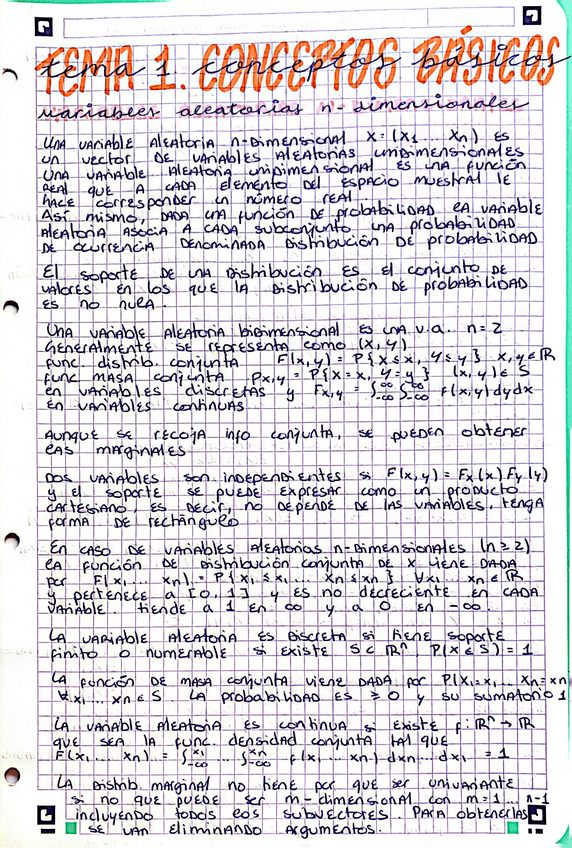 tema 1. conceptos básicos
TEMA 1. CONCEPTOS BÁSICOS
variables aleatorias n-dimensionales
Una variable aleatoria n-dimensional X = (X1 ... Xn) es
un vector de variables aleatorias unidimensionales
Una variable aleatoria unidimensional es una función
real que a cada elemento del espacio muestral le
hace corresponder un número real
Así mismo, dada una función de probabilidad la variable
aleatoria asocia a cada subconjunto una probabilidad
de ocurrencia denominada distribución de probabilidad
El soporte de una distribución es el conjunto de
valores en los que la distribución de probabilidad
es no nula.
Una variable aleatoria bidimensional es una v.a. n=2
Generalmente se representa como (X, Y)
func distrib. conjunta F(x,y) = P{X≤x, Y≤y} x,y∈ℝ
func masa conjunta Px,y = P{X=x, Y=y} (x,y)∈S
en variables discretas y Fx,y = ∫-∞^∞ ∫-∞^∞ f(x,y)dydx
en variables continuas
Aunque se recoja info conjunta, se pueden obtener
las marginales
Dos variables son independientes si F(x,y) = Fx(x) Fy(y)
y el soporte se puede expresar como un producto
cartesiano, es decir, no depende de las variables, tenga
forma de rectángulo
En caso de variables aleatorias n-dimensionales (n≥2)
la función de distribución conjunta de X viene dada
por F(x1 ... xn) = P{X1≤x1 ... Xn≤xn} ∀x1 ... xn∈ℝ
y pertenece a [0,1] y es no decreciente en cada
variable. tiende a 1 en ∞ y a 0 en -∞.
La variable aleatoria es discreta si tiene soporte
finito o numerable si existe S⊂ℝⁿ, P(X∈S) = 1
La función de masa conjunta viene dada por P(X1=x1 ... Xn=xn)
∀x1 ... xn∈S La probabilidad es ≥0 y su sumatorio 1
La variable aleatoria es continua si existe f: ℝⁿ→ℝ
que sea la func. densidad conjunta tal que
F(x1 ... xn) = ∫-∞^x1 ... ∫-∞^xn f(x1 ... xn)dxn...dx1 = 1
La distrib. marginal no tiene por que ser univariante
si no que puede ser m-dimensional con m=1 ... n-1
incluyendo todos los subvectores. Para obtenerlas
se van eliminando argumentos.